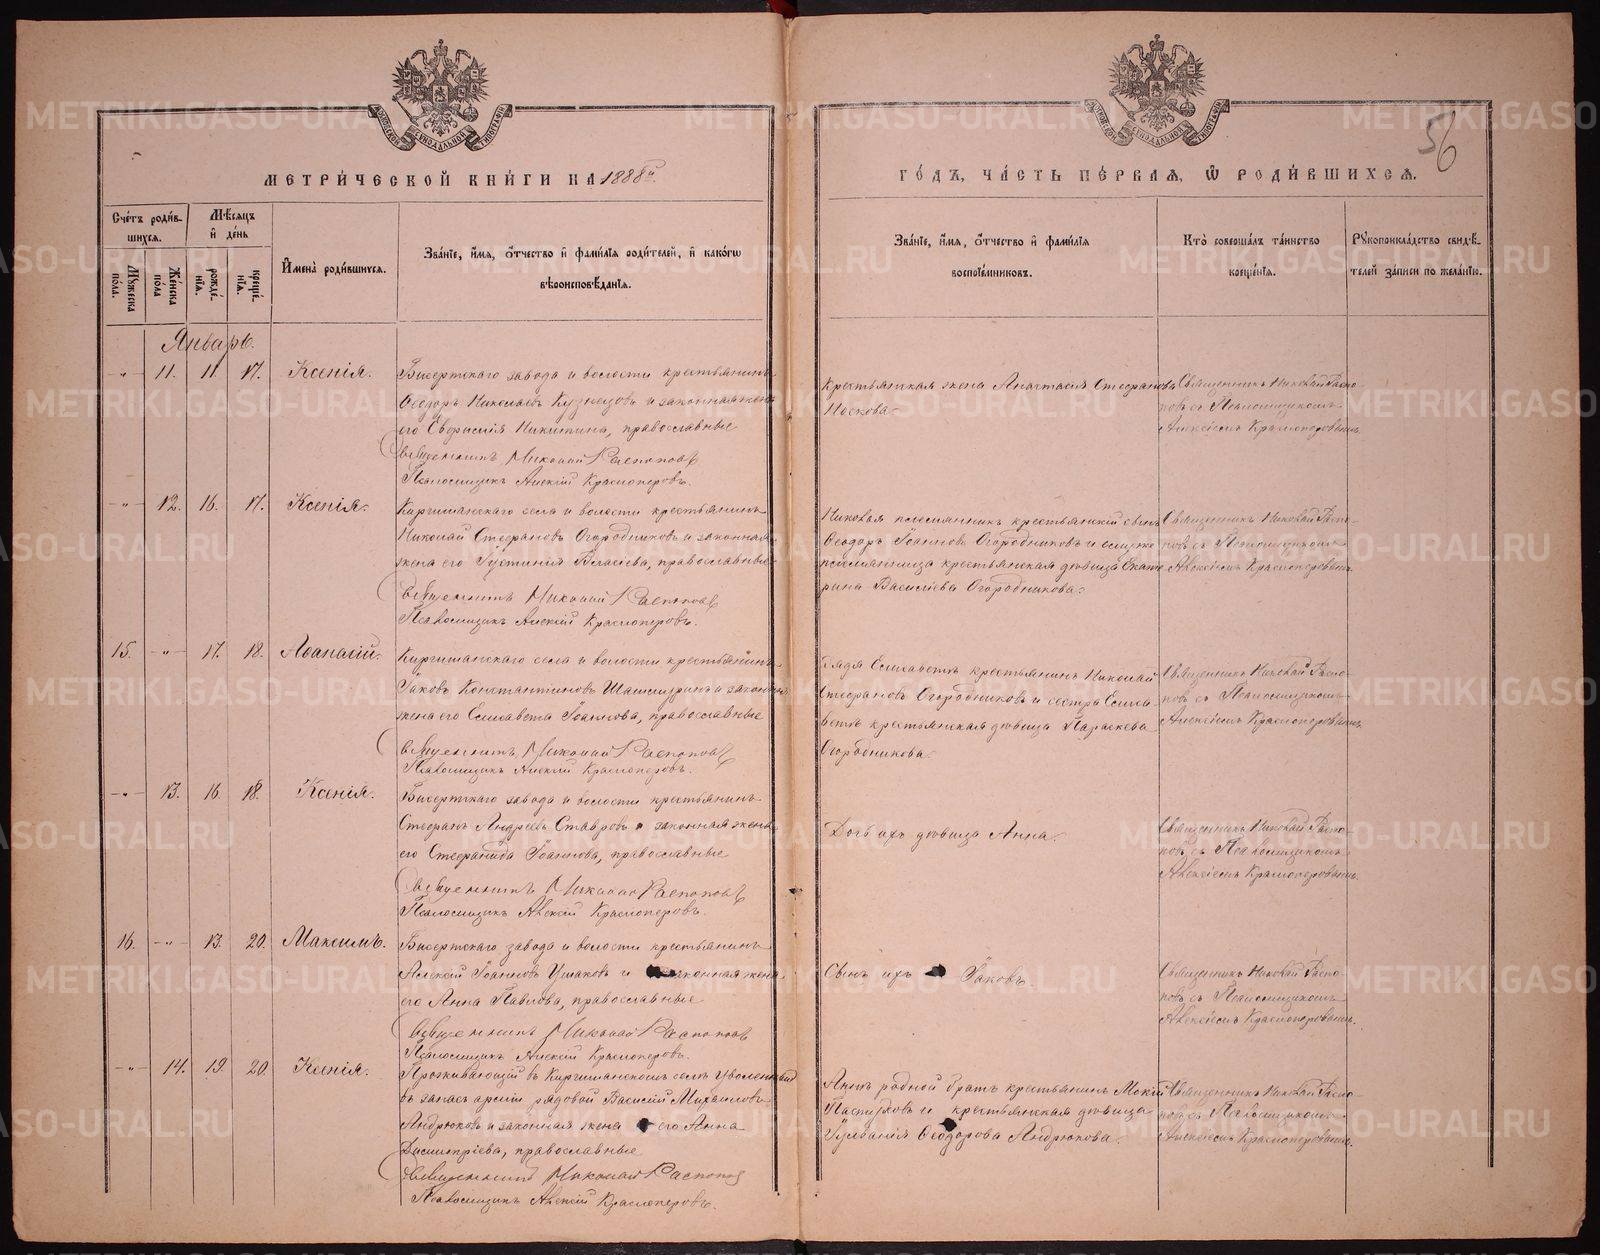 56
МЕТРИЧЕСКОЙ КНИГИ НА 1888й
ГОДЪ, ЧАСТЬ ПЕРВАЯ, Ѡ РОДИВШИХСЯ.
Счетъ родившихся.
Мужеска пола.
Женска пола
Мѣсяцъ и день
рожденія.
крещенія.
Имена родившихся.
Званіе, имя, отчество и фамилія родителей, и какого
вѣроисповѣданія.
Званіе, имя, отчество и фамилія
воспріемниковъ.
Кто совершалъ таинство
крещенія.
Рукоприкладство свидѣтелей записи по желанію.
Январь.
-"- 11. 11. 17. Ксенія.
Бисертскаго завода и волости крестьянинъ
Ѳеодоръ Николаевъ Кузнецовъ и законная жена
его Евфимія Никитина, православные
Священникъ Николай Распоповъ
Псаломщикъ Алексій Красноперовъ.
Крестьянская жена Анастасія Стефанова
Священникъ Николай Распо-
повъ съ Псаломщикомъ
Алексіемъ Красноперовымъ.
-"- 12. 16. 17. Ксенія.
Киргишанскаго села и волости крестьянинъ
Николай Стефановъ Огородниковъ и законная
жена его Іустинія Власіева, православные
Священникъ Николай Распоповъ
Псаломщикъ Алексій Красноперовъ.
племянникъ крестьянскій сынъ
Ѳеодоръ Іоанновъ Огородниковъ и
племянница крестьянская дѣвица Екате-
рина Василіева Огородникова.
Священникъ Николай Распо-
повъ съ Псаломщикомъ
Алексіемъ Красноперовымъ.
15. -"- 17. 18. Аѳанасій.
Киргишанскаго села и волости крестьянинъ
Іаковъ Константиновъ и законная
жена его Елисавета Іоаннова, православные
Священникъ Николай Распоповъ
Псаломщикъ Алексій Красноперовъ.
Дядя Елисаветы крестьянинъ Николай
Стефановъ Огородниковъ и сестра Елиса-
веты крестьянская дѣвица Параскева
Огородникова.
Священникъ Николай Распо-
повъ съ Псаломщикомъ
Алексіемъ Красноперовымъ.
-"- 13. 16. 18. Ксенія.
Бисертскаго завода и волости крестьянинъ
Стефанъ Андреевъ Ставровъ и законная жена
его Стефанида Іоаннова, православные
Священникъ Николай Распоповъ
Псаломщикъ Алексій Красноперовъ.
Дочь ихъ дѣвица Анна.
Священникъ Николай Распо-
повъ съ Псаломщикомъ
Алексіемъ Красноперовымъ.
16. -"- 13. 20. Максимъ.
Бисертскаго завода и волости крестьянинъ
Алексій Іоанновъ Ушаковъ и законная жена
его Анна Павлова, православные
Священникъ Николай Распоповъ
Псаломщикъ Алексій Красноперовъ.
Сынъ ихъ Іаковъ.
Священникъ Николай Распо-
повъ съ Псаломщикомъ
Алексіемъ Красноперовымъ.
-"- 14. 19. 20 Ксенія.
Проживающій въ Киргишанскомъ селѣ уволенный
въ запасъ арміи рядовой Василій Михаиловъ
Андрюковъ и законная жена его Анна
Димитріева, православные
Священникъ Николай Распоповъ
Псаломщикъ Алексій Красноперовъ.
Анны родной братъ крестьянинъ Мокій
Пастуховъ и крестьянская дѣвица
Іуліанія Ѳеодорова Андрюкова.
Священникъ Николай Распо-
повъ съ Псаломщикомъ
Алексіемъ Красноперовымъ.
METRIKI.GASO-URAL.RU